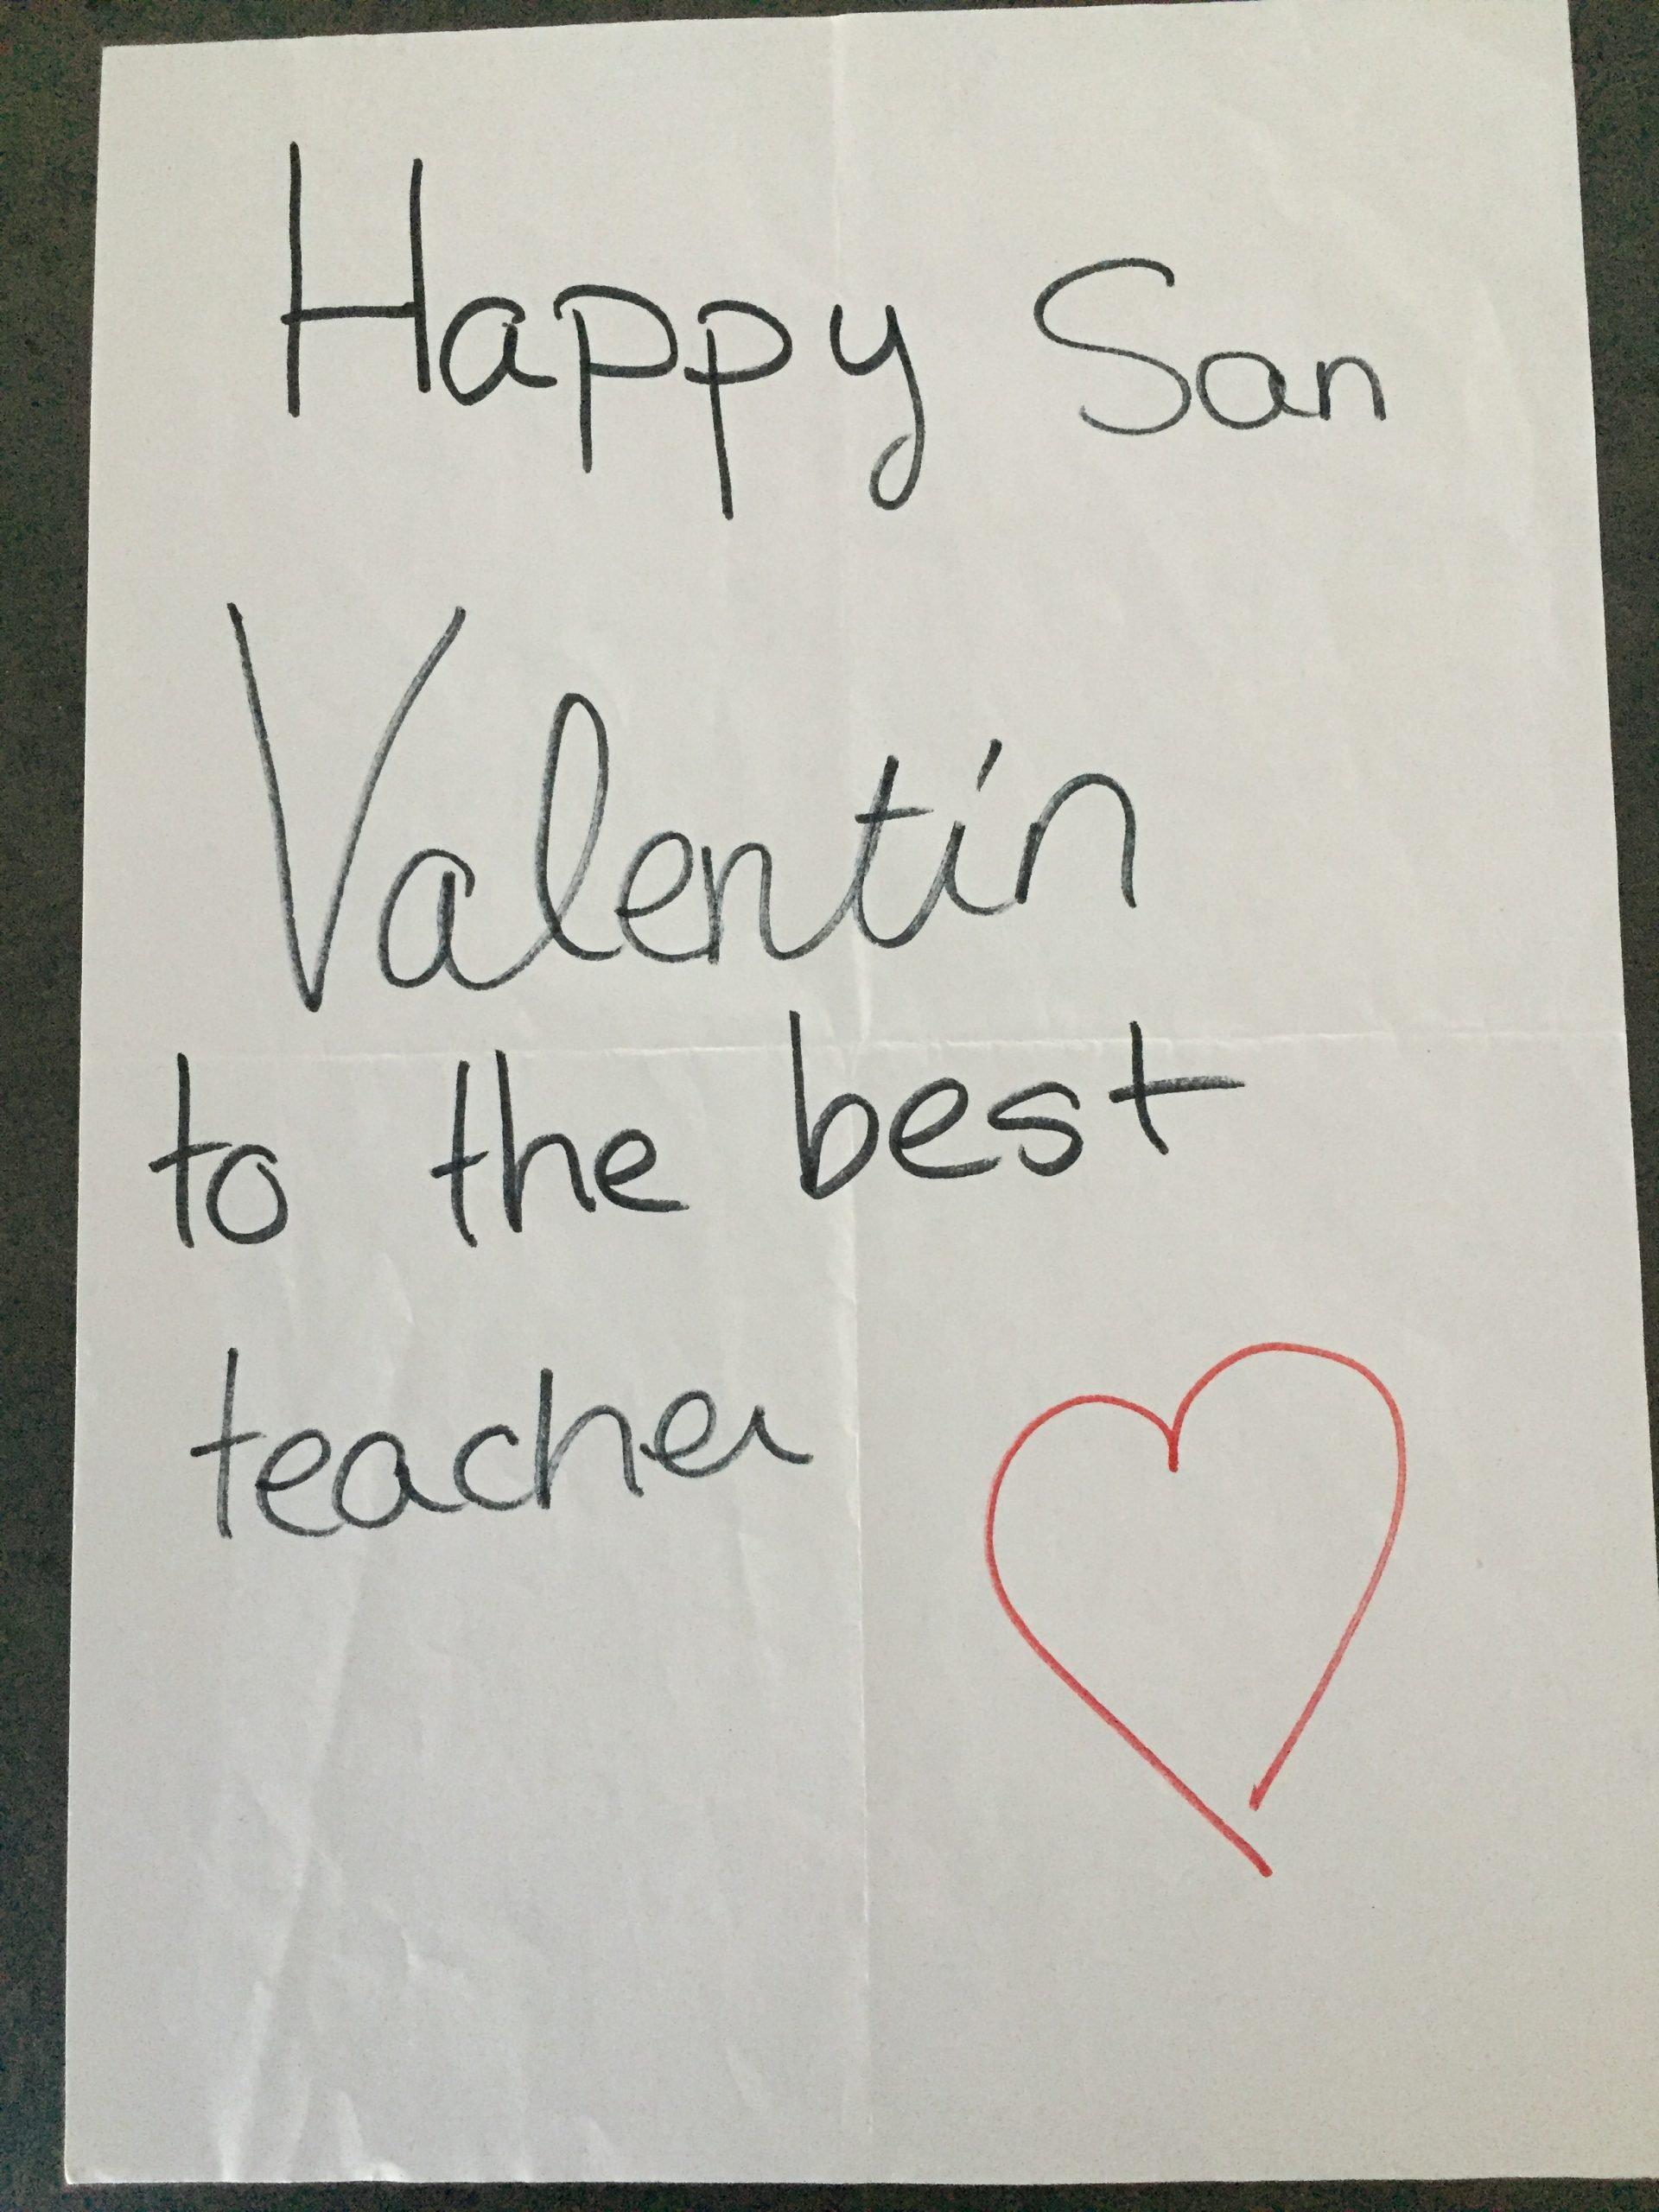 Happy San
Valentín
to the best
teacher